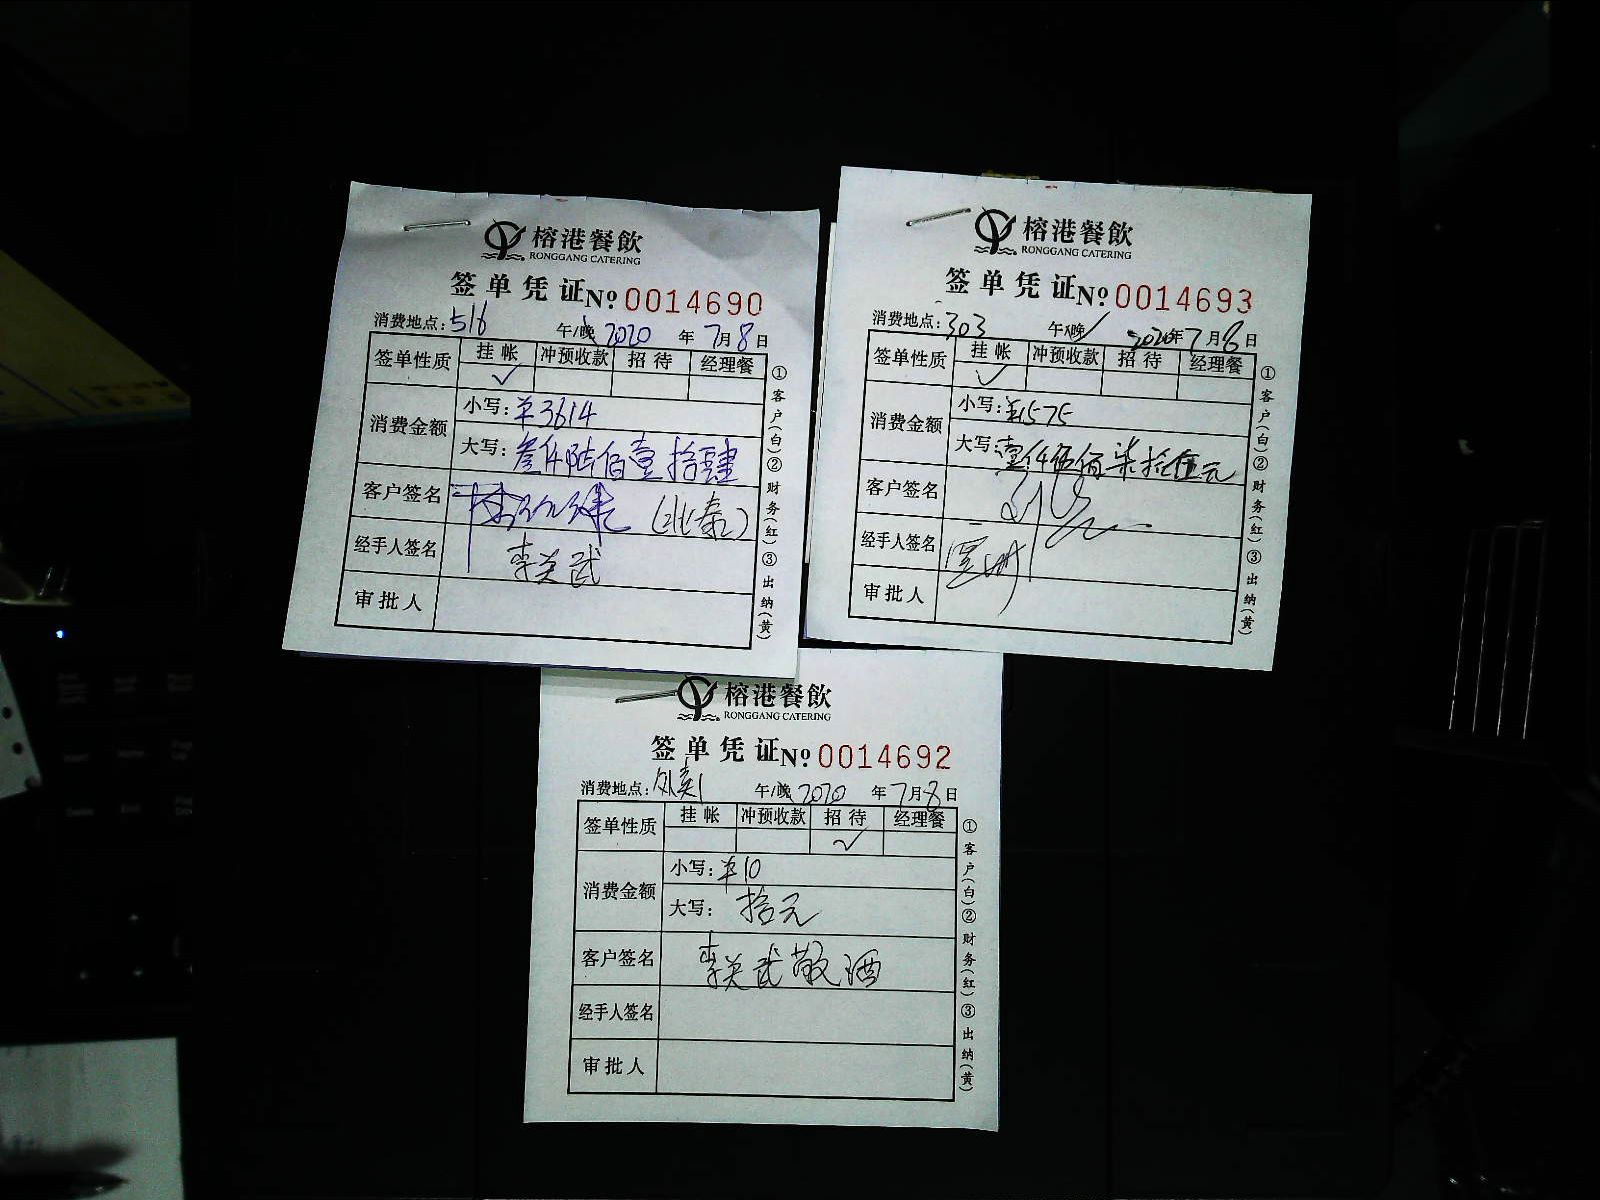 榕港餐飲
RONGGANG CATERING
签单凭证 Nº 0014690
消费地点：516 午/晚 2020年7月8日
签单性质 挂帐 冲预收款 招待 经理餐
✓
消费金额 小写：¥3614
大写：叁仟陆佰壹拾肆
客户签名
经手人签名 李关武
审批人
①客户(白)②财务(红)③出纳(黄)
榕港餐飲
RONGGANG CATERING
签单凭证 Nº 0014693
消费地点：303 午/晚 2020年7月8日
签单性质 挂帐 冲预收款 招待 经理餐
✓
消费金额 小写：¥1575
大写：壹仟伍佰柒拾伍元
客户签名
经手人签名
审批人
①客户(白)②财务(红)③出纳(黄)
榕港餐飲
RONGGANG CATERING
签单凭证 Nº 0014692
消费地点：外卖 午/晚 2020年7月8日
签单性质 挂帐 冲预收款 招待 经理餐
✓
消费金额 小写：¥10
大写：拾元
客户签名 李关武敬酒
经手人签名
审批人
①客户(白)②财务(红)③出纳(黄)